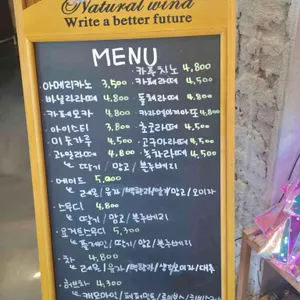 Natural wind
Write a better future
MENU
·카푸치노 4,800
·아메리카노 3,500 ·카페라떼 4,500
·바닐라라떼 4,800 ·돌체라떼 4,800
·카페모카 4,800 ·카라멜마끼아또 4,800
·아이스티 3,800 ·초코라떼 4,500
·미숫가루 4,500 ·고구마라떼 4,500
·과일라떼 4,800 ·녹차라떼 4,500
딸기 / 망고 / 블루베리
·에이드 5,000
레몬 / 유자 / 망고 /
·스무디 4,800
딸기 / 망고 / 블루베리
·요거트스무디 5,300
플레인 / 딸기 / 망고 / 블루베리
·차 4,800
레몬 / 유자 / 대추
4,300
캐모마일 / 페퍼민트 /